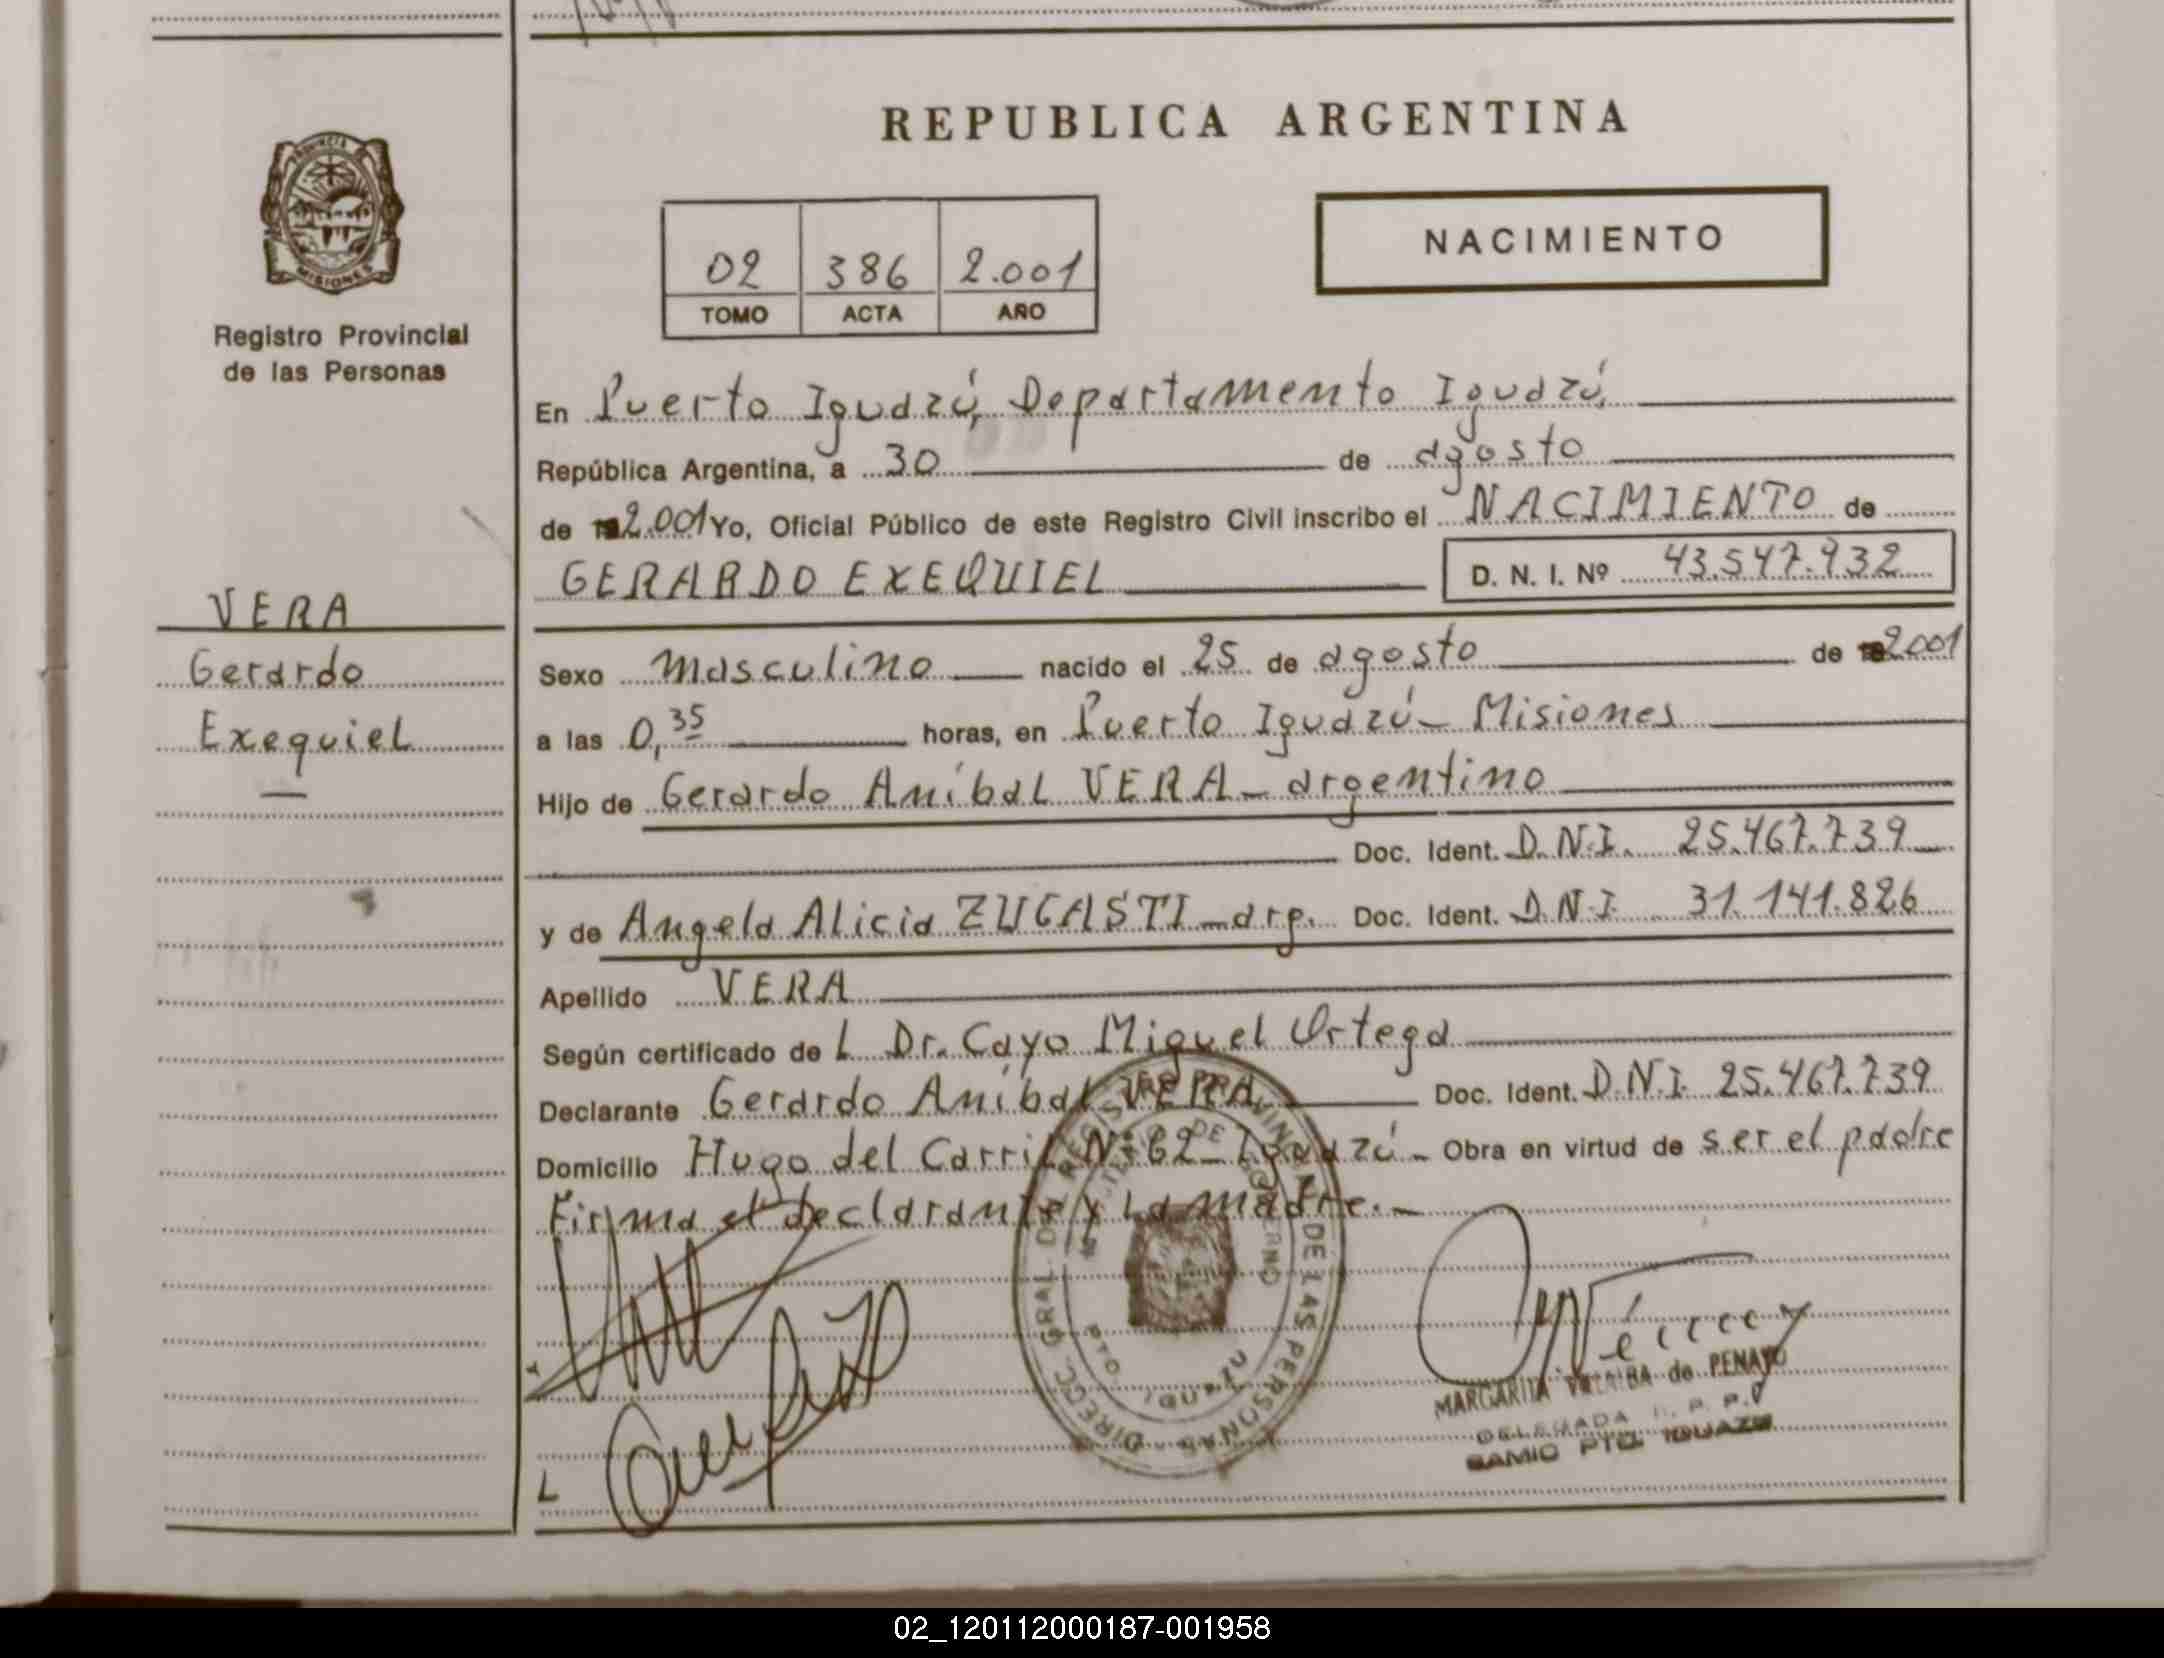 REPUBLICA ARGENTINA
PROVINCIA DE
MISIONES
Registro Provincial
de las Personas
02 386 2.001
TOMO ACTA AÑO
NACIMIENTO
En Puerto Iguazú, Departamento Iguazú,
República Argentina, a 30 de agosto
de 2.001 Yo, Oficial Público de este Registro Civil inscribo el NACIMIENTO de
GERARDO EXEQUIEL D. N. I. Nº 43.547.932
VERA
Gerardo
Exequiel
Sexo masculino nacido el 25 de agosto de 2001
a las 0,35 horas, en Puerto Iguazú - Misiones
Hijo de Gerardo Aníbal VERA - argentino
Doc. Ident. D.N.I. 25.467.739
y de Angela Alicia ZUGASTI - arg. Doc. Ident. D.N.I 31.141.826
Apellido VERA
Según certificado del Dr. Cayo Miguel Ortega
Declarante Gerardo Aníbal VERA Doc. Ident. D.N.I. 25.467.739
Domicilio Hugo del Carril Nº 62 - Iguazú - Obra en virtud de ser el padre
Firma el declarante y la madre.-
DIRECC. GRAL DEL REGISTRO PROVINCIAL DE LAS PERSONAS
MINISTERIO DE GOBIERNO
PTO. IGUAZU
MARGARITA VILLALBA de PENAYO
DELEGADA R. P. P.
SAMIC PTO. IGUAZU
02_120112000187-001958